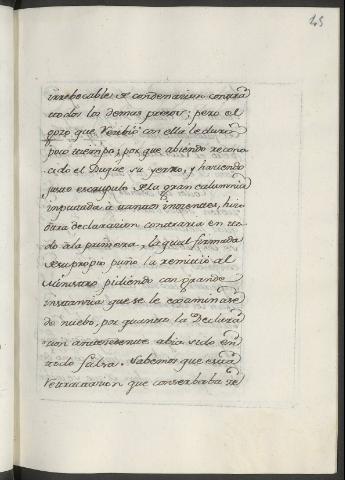 145
irrebocables de condenacion contra
todos los demas presos; pero el
gozo que recibió con ella le duró
poco tiempo; por que abiendo recono
cido el Duque su yerro, y haviendo
justo escrupulo de la gran calumnia
imputada à tantos inocentes, hizo
otra declaracion contraria en to
do de la primera, la qual firmada
de su propio puño la remitió al
Ministro pidiendo con grande
instancia que se le examinase
de nuebo, por quanto la Declara
cion antecedente abia sido en
todo falsa. Sabemos que esta
retractacion que conserbaba se